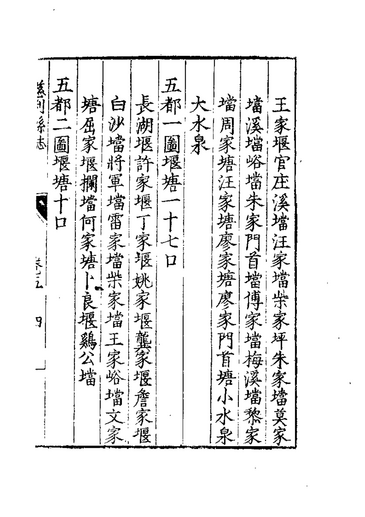 王家堰官庄溪壋汪家壋柴家坪朱家壋莫家
壋溪壋峪壋朱家門首壋傅家壋梅溪壋黎家
壋周家塘汪家塘廖家塘廖家門首塘小水泉
大水泉
五都一圖堰塘一十七口
長湖堰許家堰丁家堰姚家堰龔家堰詹家堰
白沙壋將軍壋雷家壋柴家壋王家峪壋文家
塘屈家堰攔壋何家塘卜良堰鷄公壋
五都二圖堰塘十口
慈利縣志
卷之五
四